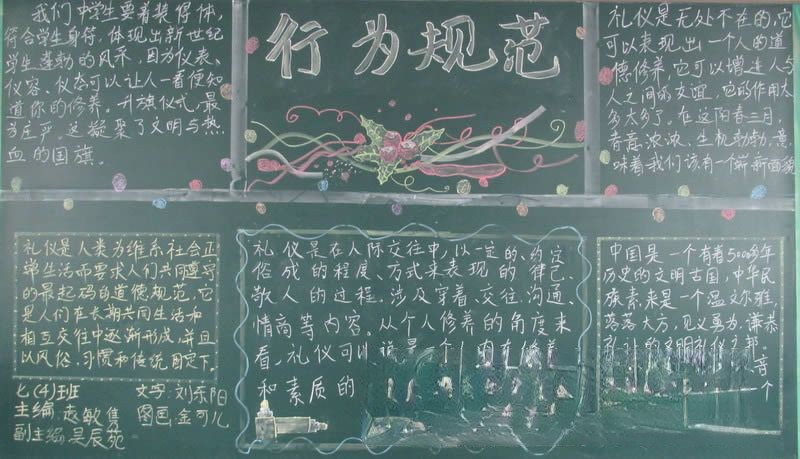 我们中学生要着装得体,
符合学生身符,体现出新世纪
学生蓬勃的风采,因为仪表、
仪容、仪态可以让人一看便知
道你的修养。升旗仪式,最
为庄严,这凝聚了文明与热
血的国旗。
行为规范
礼仪是无处不在的,它
可以表现出一个人的道
德修养,它可以增进人与
人之间的友谊,它的作用太
多太多了。在这阳春三月,
春意浓浓、生机勃勃,意
味着我们该有一个崭新面貌
礼仪是人类为维系社会正
常生活而要求人们共同遵守
的最起码的道德规范,它
是人们在长期共同生活和
相互交往中逐渐形成,并且
以风俗、习惯和传统固定下。
七(4)班 文字:刘东阳
主编:袁敏隽 图画:金可儿
副主编:吴辰苑
礼仪是在人际交往中,以一定的、约定
俗成的程度、方式来表现的律己、
敬人的过程,涉及穿着、交往、沟通、
情商等内容。从个人修养的角度来
看,礼仪可以说是一个人内在修养
和素质的
中国是一个有着5000多年
历史的文明古国,中华民
族素来是一个温文尔雅,
落落大方,见义勇为,谦恭
礼让的文明礼仪之邦。